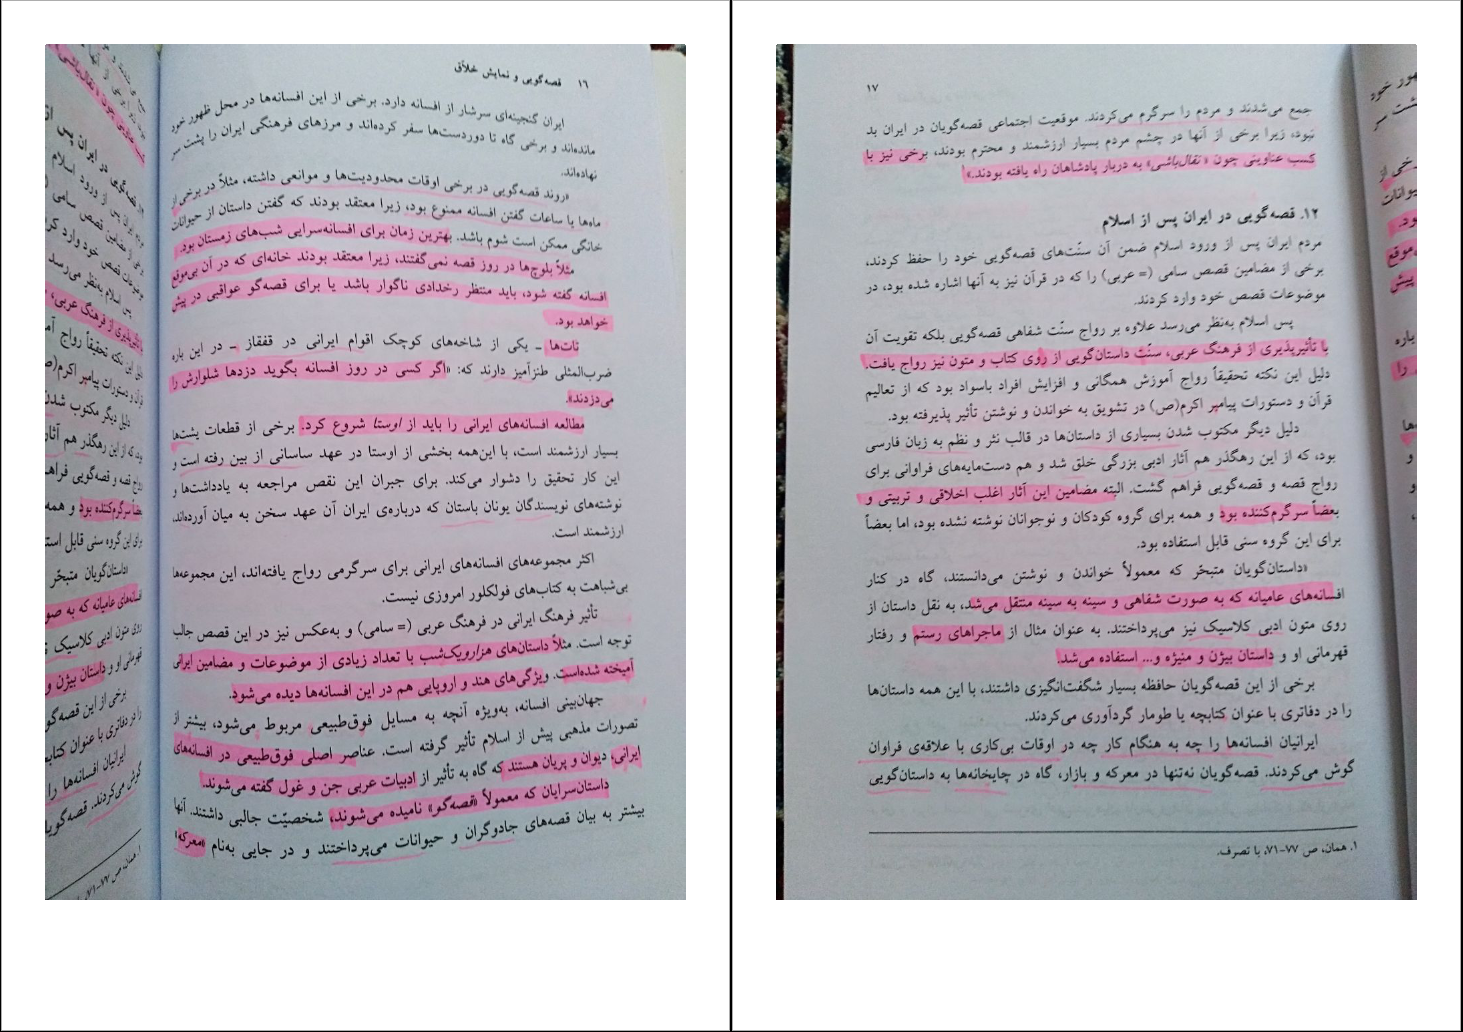 ۱۶ قصه‌گویی و نمایش خلاّق
ایران گنجینه‌ای سرشار از افسانه دارد. برخی از این افسانه‌ها در محل ظهور خود
مانده‌اند و برخی گاه تا دوردست‌ها سفر کرده‌اند و مرزهای فرهنگی ایران را پشت سر
نهاده‌اند.
«روند قصه‌گویی در برخی اوقات محدودیت‌ها و موانعی داشته، مثلاً در برخی از
ماه‌ها یا ساعات گفتن افسانه ممنوع بود، زیرا معتقد بودند که گفتن داستان از حیوانات
خانگی ممکن است شوم باشد. بهترین زمان برای افسانه‌سرایی شب‌های زمستان بود.
مثلاً بلوچ‌ها در روز قصه نمی‌گفتند، زیرا معتقد بودند خانه‌ای که در آن بی‌موقع
افسانه گفته شود، باید منتظر رخدادی ناگوار باشد یا برای قصه‌گو عواقبی در پیش
خواهد بود.
تات‌ها ـ یکی از شاخه‌های کوچک اقوام ایرانی در قفقاز ـ در این باره
ضرب‌المثلی طنزآمیز دارند که: «اگر کسی در روز افسانه بگوید دزدها شلوارش را
می‌دزدند».
مطالعه افسانه‌های ایرانی را باید از اوستا شروع کرد. برخی از قطعات یشت‌ها
بسیار ارزشمند است، با این‌همه بخشی از اوستا در عهد ساسانی از بین رفته است و
این کار تحقیق را دشوار می‌کند. برای جبران این نقص مراجعه به یادداشت‌ها و
نوشته‌های نویسندگان یونان باستان که درباره‌ی ایران آن عهد سخن به میان آورده‌اند،
ارزشمند است.
اکثر مجموعه‌های افسانه‌های ایرانی برای سرگرمی رواج یافته‌اند، این مجموعه‌ها
بی‌شباهت به کتاب‌های فولکلور امروزی نیست.
تأثیر فرهنگ ایرانی در فرهنگ عربی (= سامی) و به‌عکس نیز در این قصص جالب
توجه است. مثلاً داستان‌های هزارویک‌شب با تعداد زیادی از موضوعات و مضامین ایرانی
آمیخته شده‌است. ویژگی‌های هند و اروپایی هم در این افسانه‌ها دیده می‌شود.
جهان‌بینی افسانه، به‌ویژه آنچه به مسایل فوق‌طبیعی مربوط می‌شود، بیشتر از
تصورات مذهبی پیش از اسلام تأثیر گرفته است. عناصر اصلی فوق‌طبیعی در افسانه‌های
ایرانی، دیوان و پریان هستند که گاه به تأثیر از ادبیات عربی جن و غول گفته می‌شوند.
داستان‌سرایان که معمولاً «قصه‌گو» نامیده می‌شوند، شخصیّت جالبی داشتند. آنها
بیشتر به بیان قصه‌های جادوگران و حیوانات می‌پرداختند و در جایی به‌نام «معرکه»
۱۷
جمع می‌شدند و مردم را سرگرم می‌کردند. موقعیت اجتماعی قصه‌گویان در ایران بد
نبود، زیرا برخی از آنها در چشم مردم بسیار ارزشمند و محترم بودند، برخی نیز با
کسب عناوینی چون «نقال‌باشی» به دربار پادشاهان راه یافته بودند.»
۱۲. قصه‌گویی در ایران پس از اسلام
مردم ایران پس از ورود اسلام ضمن آن سنّت‌های قصه‌گویی خود را حفظ کردند،
برخی از مضامین قصص سامی (= عربی) را که در قرآن نیز به آنها اشاره شده بود، در
موضوعات قصص خود وارد کردند.
پس اسلام به‌نظر می‌رسد علاوه بر رواج سنّت شفاهی قصه‌گویی بلکه تقویت آن
با تأثیرپذیری از فرهنگ عربی، سنّت داستان‌گویی از روی کتاب و متون نیز رواج یافت.
دلیل این نکته تحقیقاً رواج آموزش همگانی و افزایش افراد باسواد بود که از تعالیم
قرآن و دستورات پیامبر اکرم(ص) در تشویق به خواندن و نوشتن تأثیر پذیرفته بود.
دلیل دیگر مکتوب شدن بسیاری از داستان‌ها در قالب نثر و نظم به زبان فارسی
بود، که از این رهگذر هم آثار ادبی بزرگی خلق شد و هم دست‌مایه‌های فراوانی برای
رواج قصه و قصه‌گویی فراهم گشت. البته مضامین این آثار اغلب اخلاقی و تربیتی و
بعضاً سرگرم‌کننده بود و همه برای گروه کودکان و نوجوانان نوشته نشده بود، اما بعضاً
برای این گروه سنی قابل استفاده بود.
«داستان‌گویان متبحّر که معمولاً خواندن و نوشتن می‌دانستند، گاه در کنار
افسانه‌های عامیانه که به صورت شفاهی و سینه به سینه منتقل می‌شد، به نقل داستان از
روی متون ادبی کلاسیک نیز می‌پرداختند. به عنوان مثال از ماجراهای رستم و رفتار
قهرمانی او و داستان بیژن و منیژه و... استفاده می‌شد.
برخی از این قصه‌گویان حافظه بسیار شگفت‌انگیزی داشتند، با این همه داستان‌ها
را در دفاتری با عنوان کتابچه یا طومار گردآوری می‌کردند.
ایرانیان افسانه‌ها را چه به هنگام کار چه در اوقات بی‌کاری با علاقه‌ی فراوان
گوش می‌کردند. قصه‌گویان نه‌تنها در معرکه و بازار، گاه در چایخانه‌ها به داستان‌گویی
۱. همان، ص ۷۷-۷۱، با تصرف.